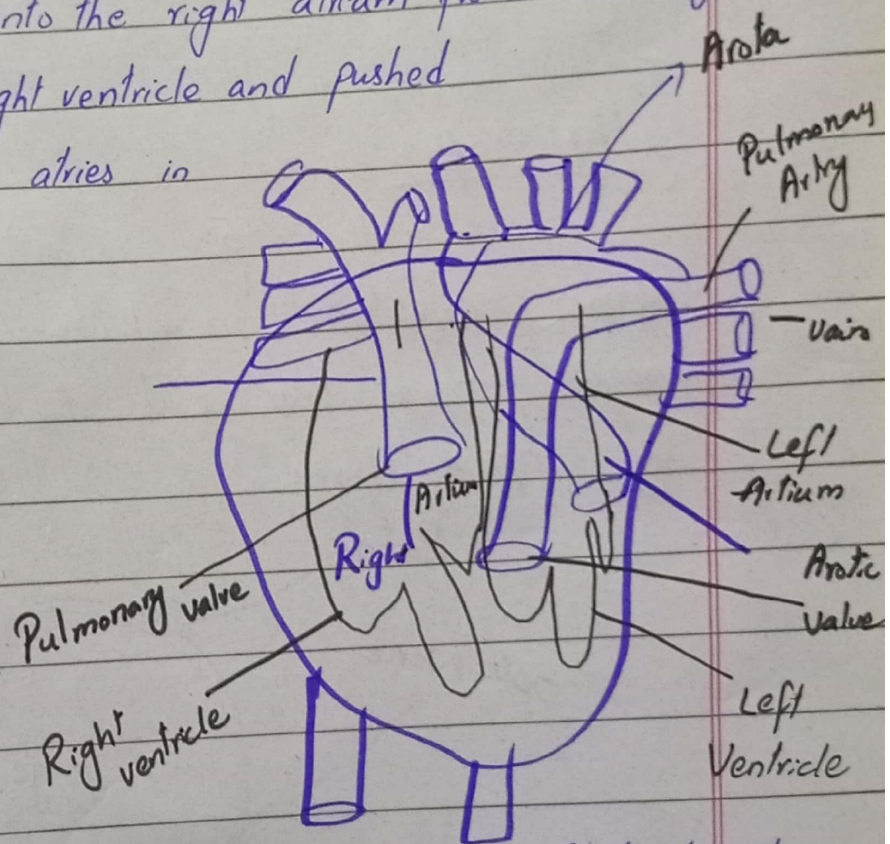 into the right
ght ventricle and pushed
atries in
Arota
Pulmonay
Artry
vain
Left
Artium
Arotic
valve
Left
Ventricle
Artium
Right
Pulmonary valve
Right
ventricle